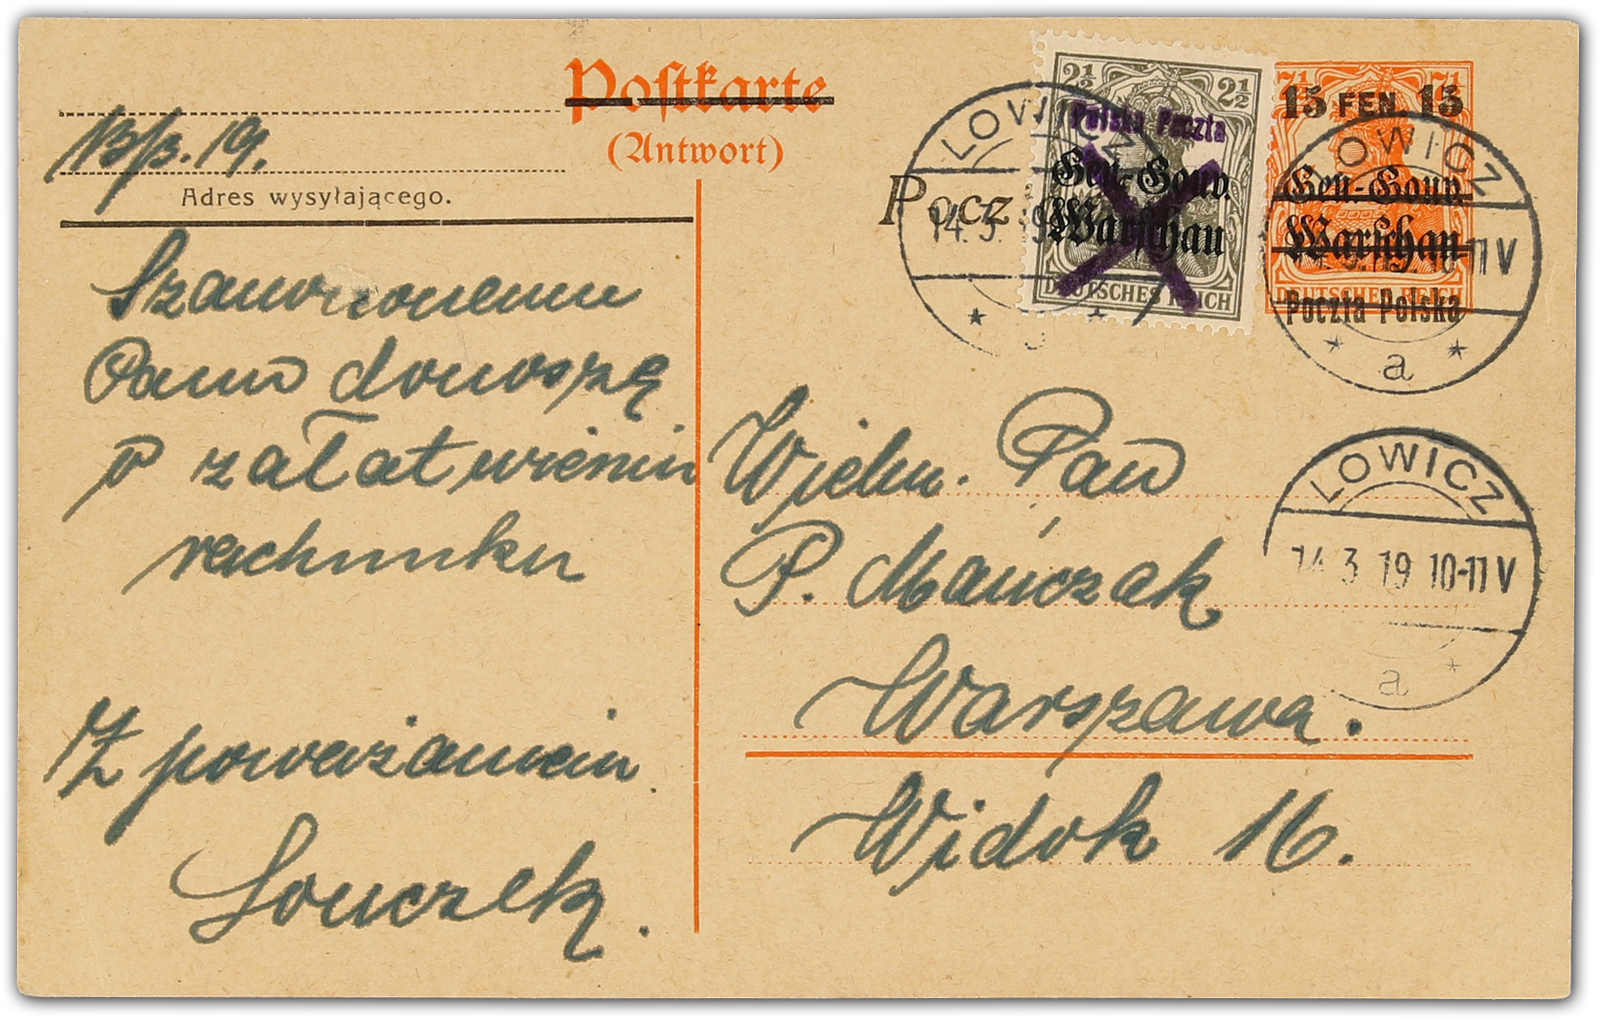 Postkarte
(Antwort)
13/3. 19.
Adres wysyłającego.
Szanownemu
Panu donoszę
o załatwieniu
rachunku
Z poważaniem
Pocz
2½ 2½
Polska Poczta
Gen.-Gouv.
Warschau
DEUTSCHES REICH
7½ 7½
15 FEN. 15
Gen.-Gouv.
Warschau
DEUTSCHES REICH
Poczta Polska
ŁOWICZ
14.3.
ŁOWICZ
10-11 V
a
ŁOWICZ
14.3 19 10-11 V
a
Wielm. Pan
P. Mańczak
Warszawa.
Widok 16.